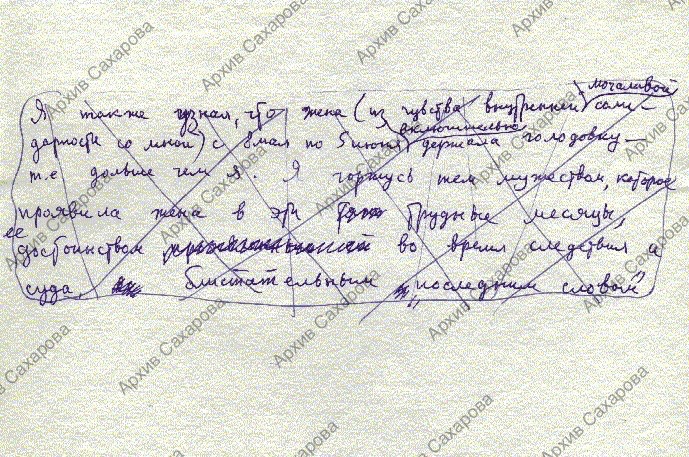 молчаливой
Я также узнал, что жена (из чувства внутренней соли-
дарности со мной) с 8 мая по 5 июня включительно держала голодовку —
т.е дольше чем я. Я горжусь тем мужеством, которое
проявила жена в эти трудные месяцы,
ее достоинством во время следствия и
суда, блистательным „последним словом"
Архив Сахарова
Архив Сахарова
Архив Сахарова
Архив Сахарова
Архив Сахарова
Архив Сахарова
Архив Сахарова
Архив Сахарова
Архив Сахарова
Архив Сахарова
Архив Сахарова
Архив Сахарова